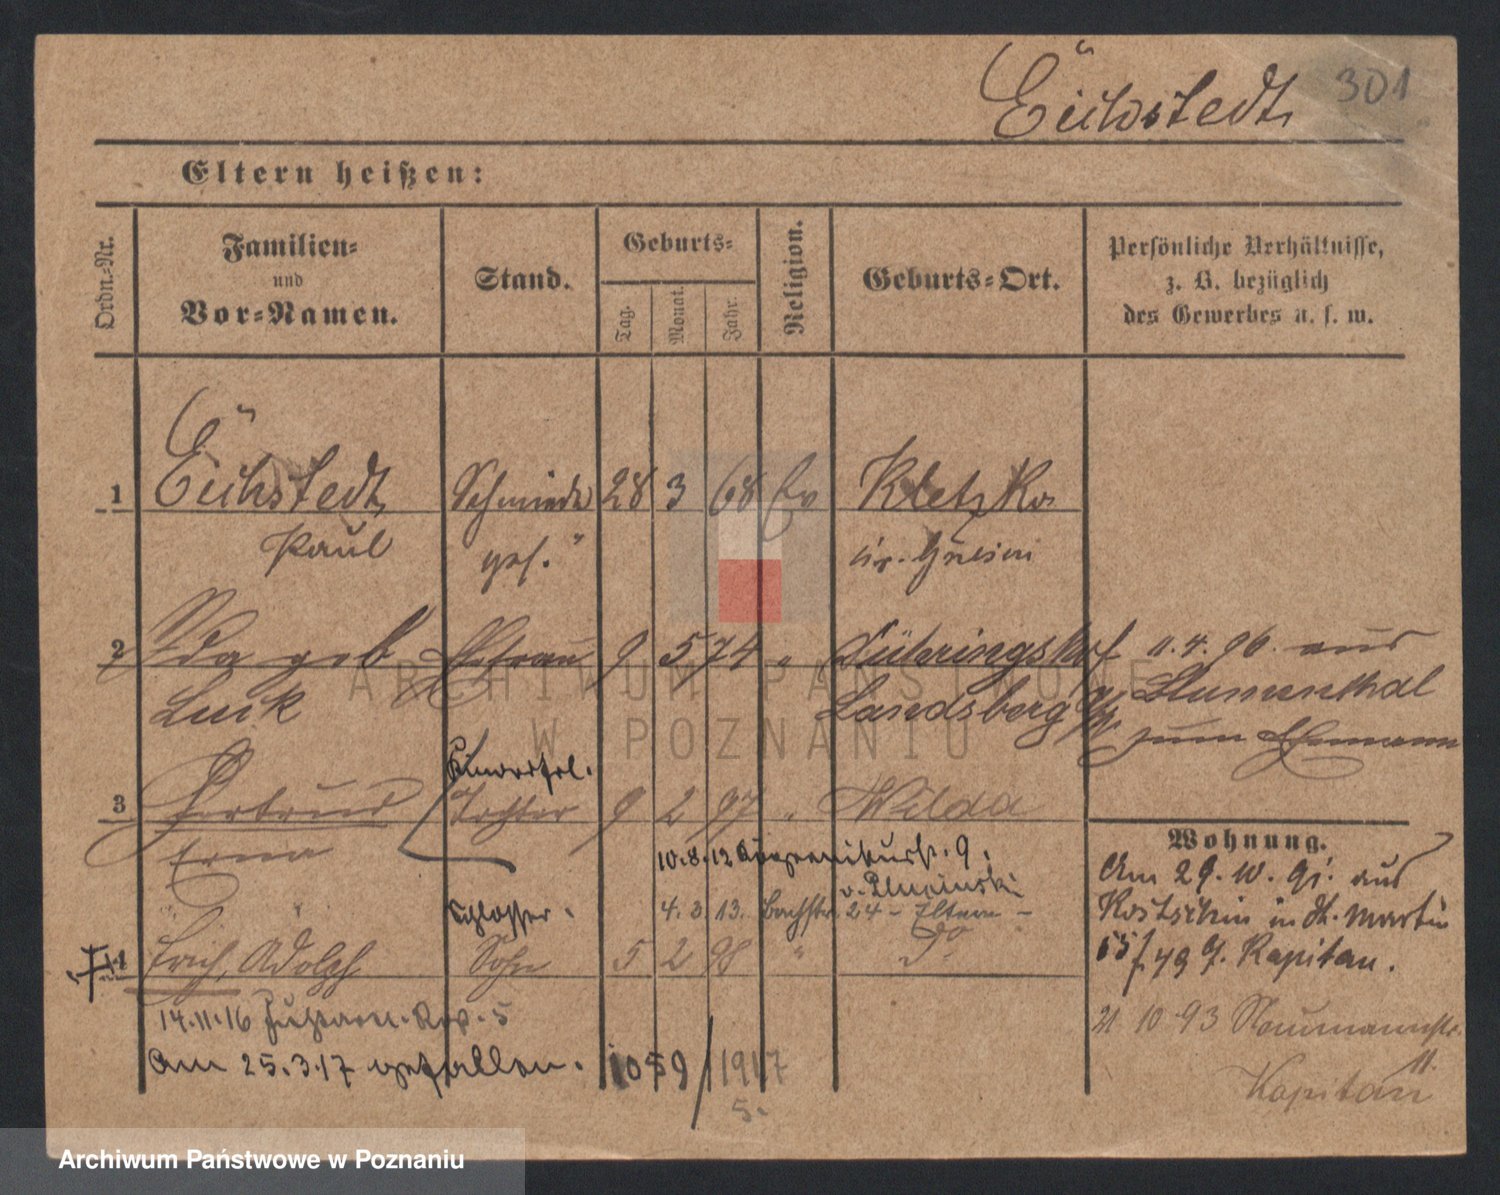 Eichstedt 301
Eltern heißen:
Ordn.-Nr.
Familien-
und
Vor-Namen.
Stand.
Geburts-
Tag.
Monat.
Jahr.
Religion.
Geburts-Ort.
Persönliche Verhältnisse,
z. B. bezüglich
des Gewerbes u. s. w.
1 Eichstedt, Schmiede 28 3 68 Ev Kletzko
Paul ges. Kr. Gnesen
2 Ida geb Ehefrau 9 5 74 " Lühringshof 11.4.96. aus
Luck Landsberg Blumenthal
zum Ehemann
3 Gertrud Tochter 9 2 97 " Wilda
Erna
10.8.12 9.
4.3.13. Bachstr. 24 - Eltern -
Schlosser.
4 Erich, Adolph Sohn 5 2 98 " do
14.11.16 5
Am 25.3.17 gefallen. 1059/1917
5.
Wohnung.
Am 29.10.91. aus
Kostschin in St. Martin
55/ 49 b. Kapitan.
21 10 93 Naumannstr.
11.
Kapitan
ARCHIWUM PAŃSTWOWE
W POZNANIU
Archiwum Państwowe w Poznaniu